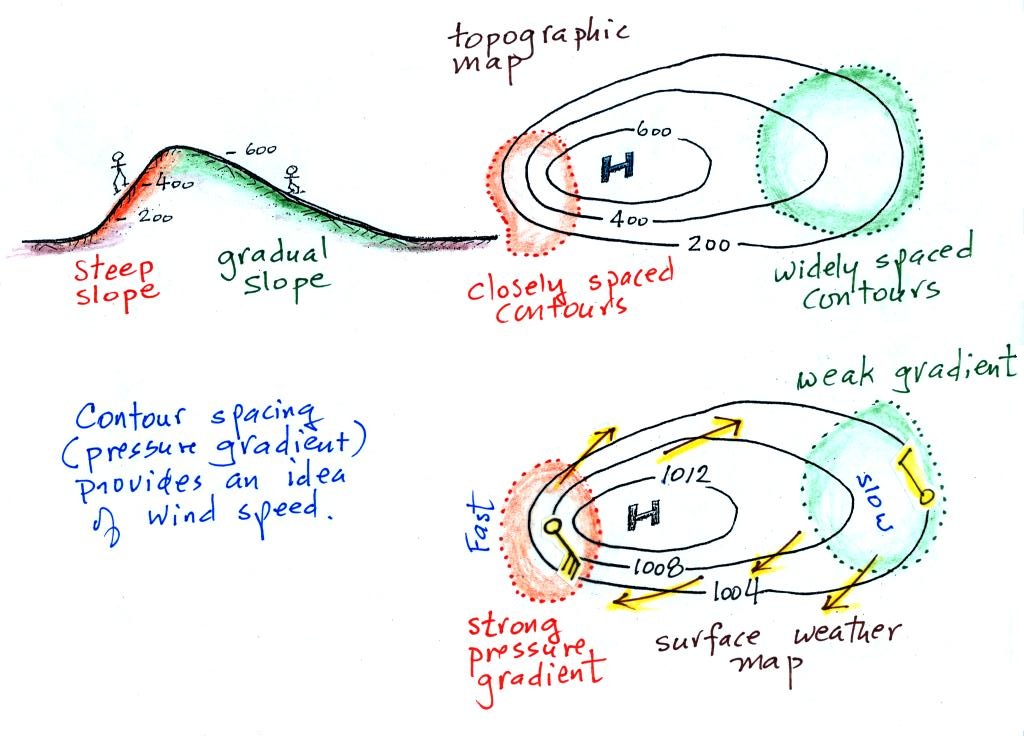 topographic
map
600
400
200
steep
slope
gradual
slope
600
H
400
200
closely spaced
contours
widely spaced
contours
weak gradient
Contour spacing
(pressure gradient)
provides an idea
of wind speed.
1012
H
1008
1004
Fast
slow
strong
pressure
gradient
surface weather
map